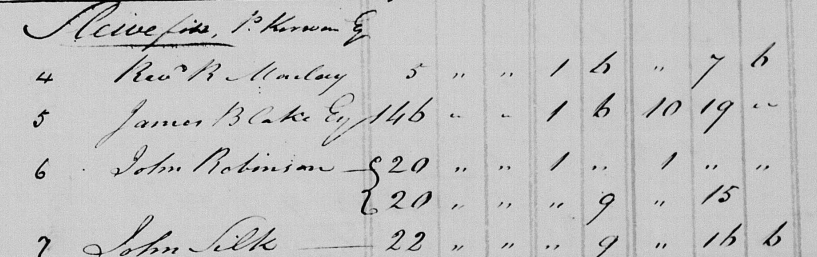 Slievefin, P. Kerwan Eq
4 Revd R 5 " " 1 6 " 7 6
5 James Blake Eq 146 " " 1 6 10 19 "
6 John Robinson — { 20 " " 1 " 1 " "
20 " " " 9 " 15
7 John Silk — 22 " " " 9 " 16 6